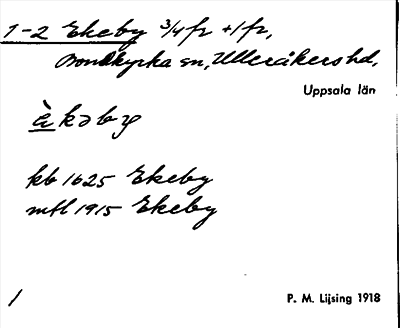 1-2 Ekeby 3/4 fr + 1 fr,
Bondkyrka sn, Ulleråkers hd,
Uppsala län
kb 1625 Ekeby
mtl 1915 Ekeby
1
P. M. Lijsing 1918